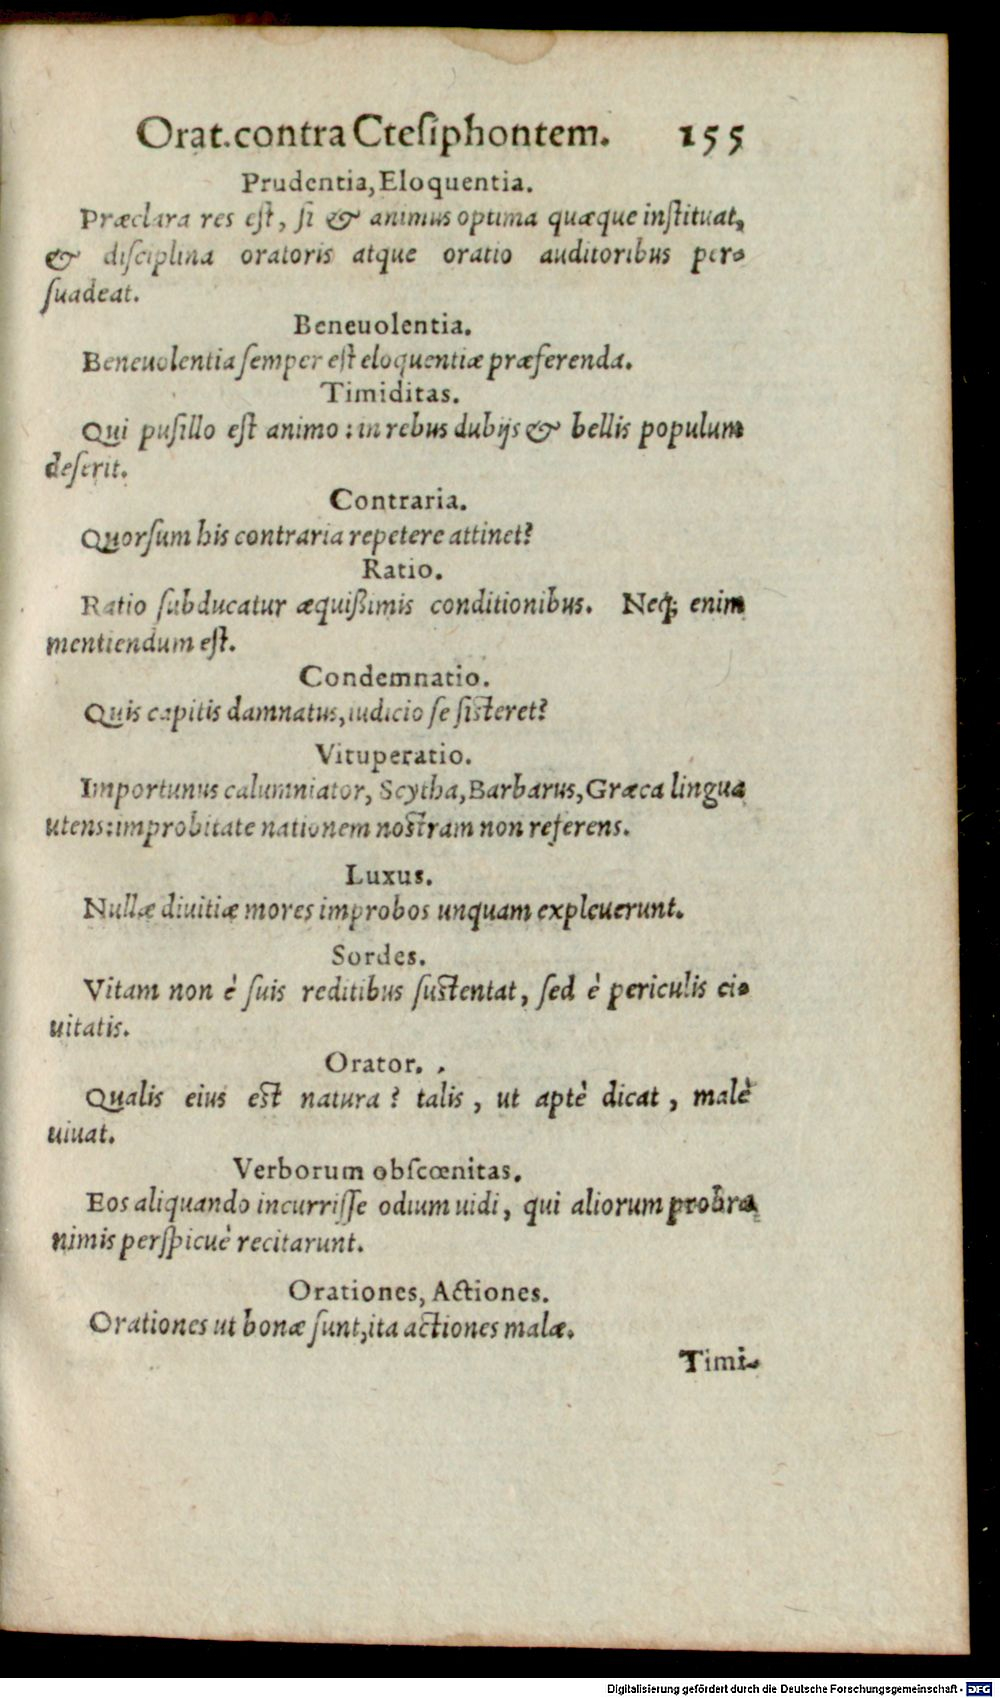 Orat. contra Ctesiphontem. 155
Prudentia, Eloquentia.
Præclara res eſt, ſi & animus optima quæque inſtituat,
& diſciplina oratoris atque oratio auditoribus per-
ſuadeat.
Beneuolentia.
Beneuolentia ſemper eſt eloquentiæ præferenda.
Timiditas.
Qui puſillo eſt animo: in rebus dubijs & bellis populum
deſerit.
Contraria.
Quorſum his contraria repetere attinet?
Ratio.
Ratio ſubducatur æquißimis conditionibus. Neq; enim
mentiendum eſt.
Condemnatio.
Quis capitis damnatus, iudicio ſe ſiſteret?
Vituperatio.
Importunus calumniator, Scytha, Barbarus, Græca lingua
utens: improbitate nationem noſtram non referens.
Luxus.
Nullæ diuitiæ mores improbos unquam expleuerunt.
Sordes.
Vitam non è ſuis reditibus ſuſtentat, ſed è periculis ci-
uitatis.
Orator. .
Qualis eius eſt natura? talis, ut aptè dicat, malè
uiuat.
Verborum obſcœnitas.
Eos aliquando incurriſſe odium uidi, qui aliorum probra
nimis perſpicuè recitarunt.
Orationes, Actiones.
Orationes ut bonæ ſunt, ita actiones malæ.
Timi-
Digitalisierung gefördert durch die Deutsche Forschungsgemeinschaft - DFG